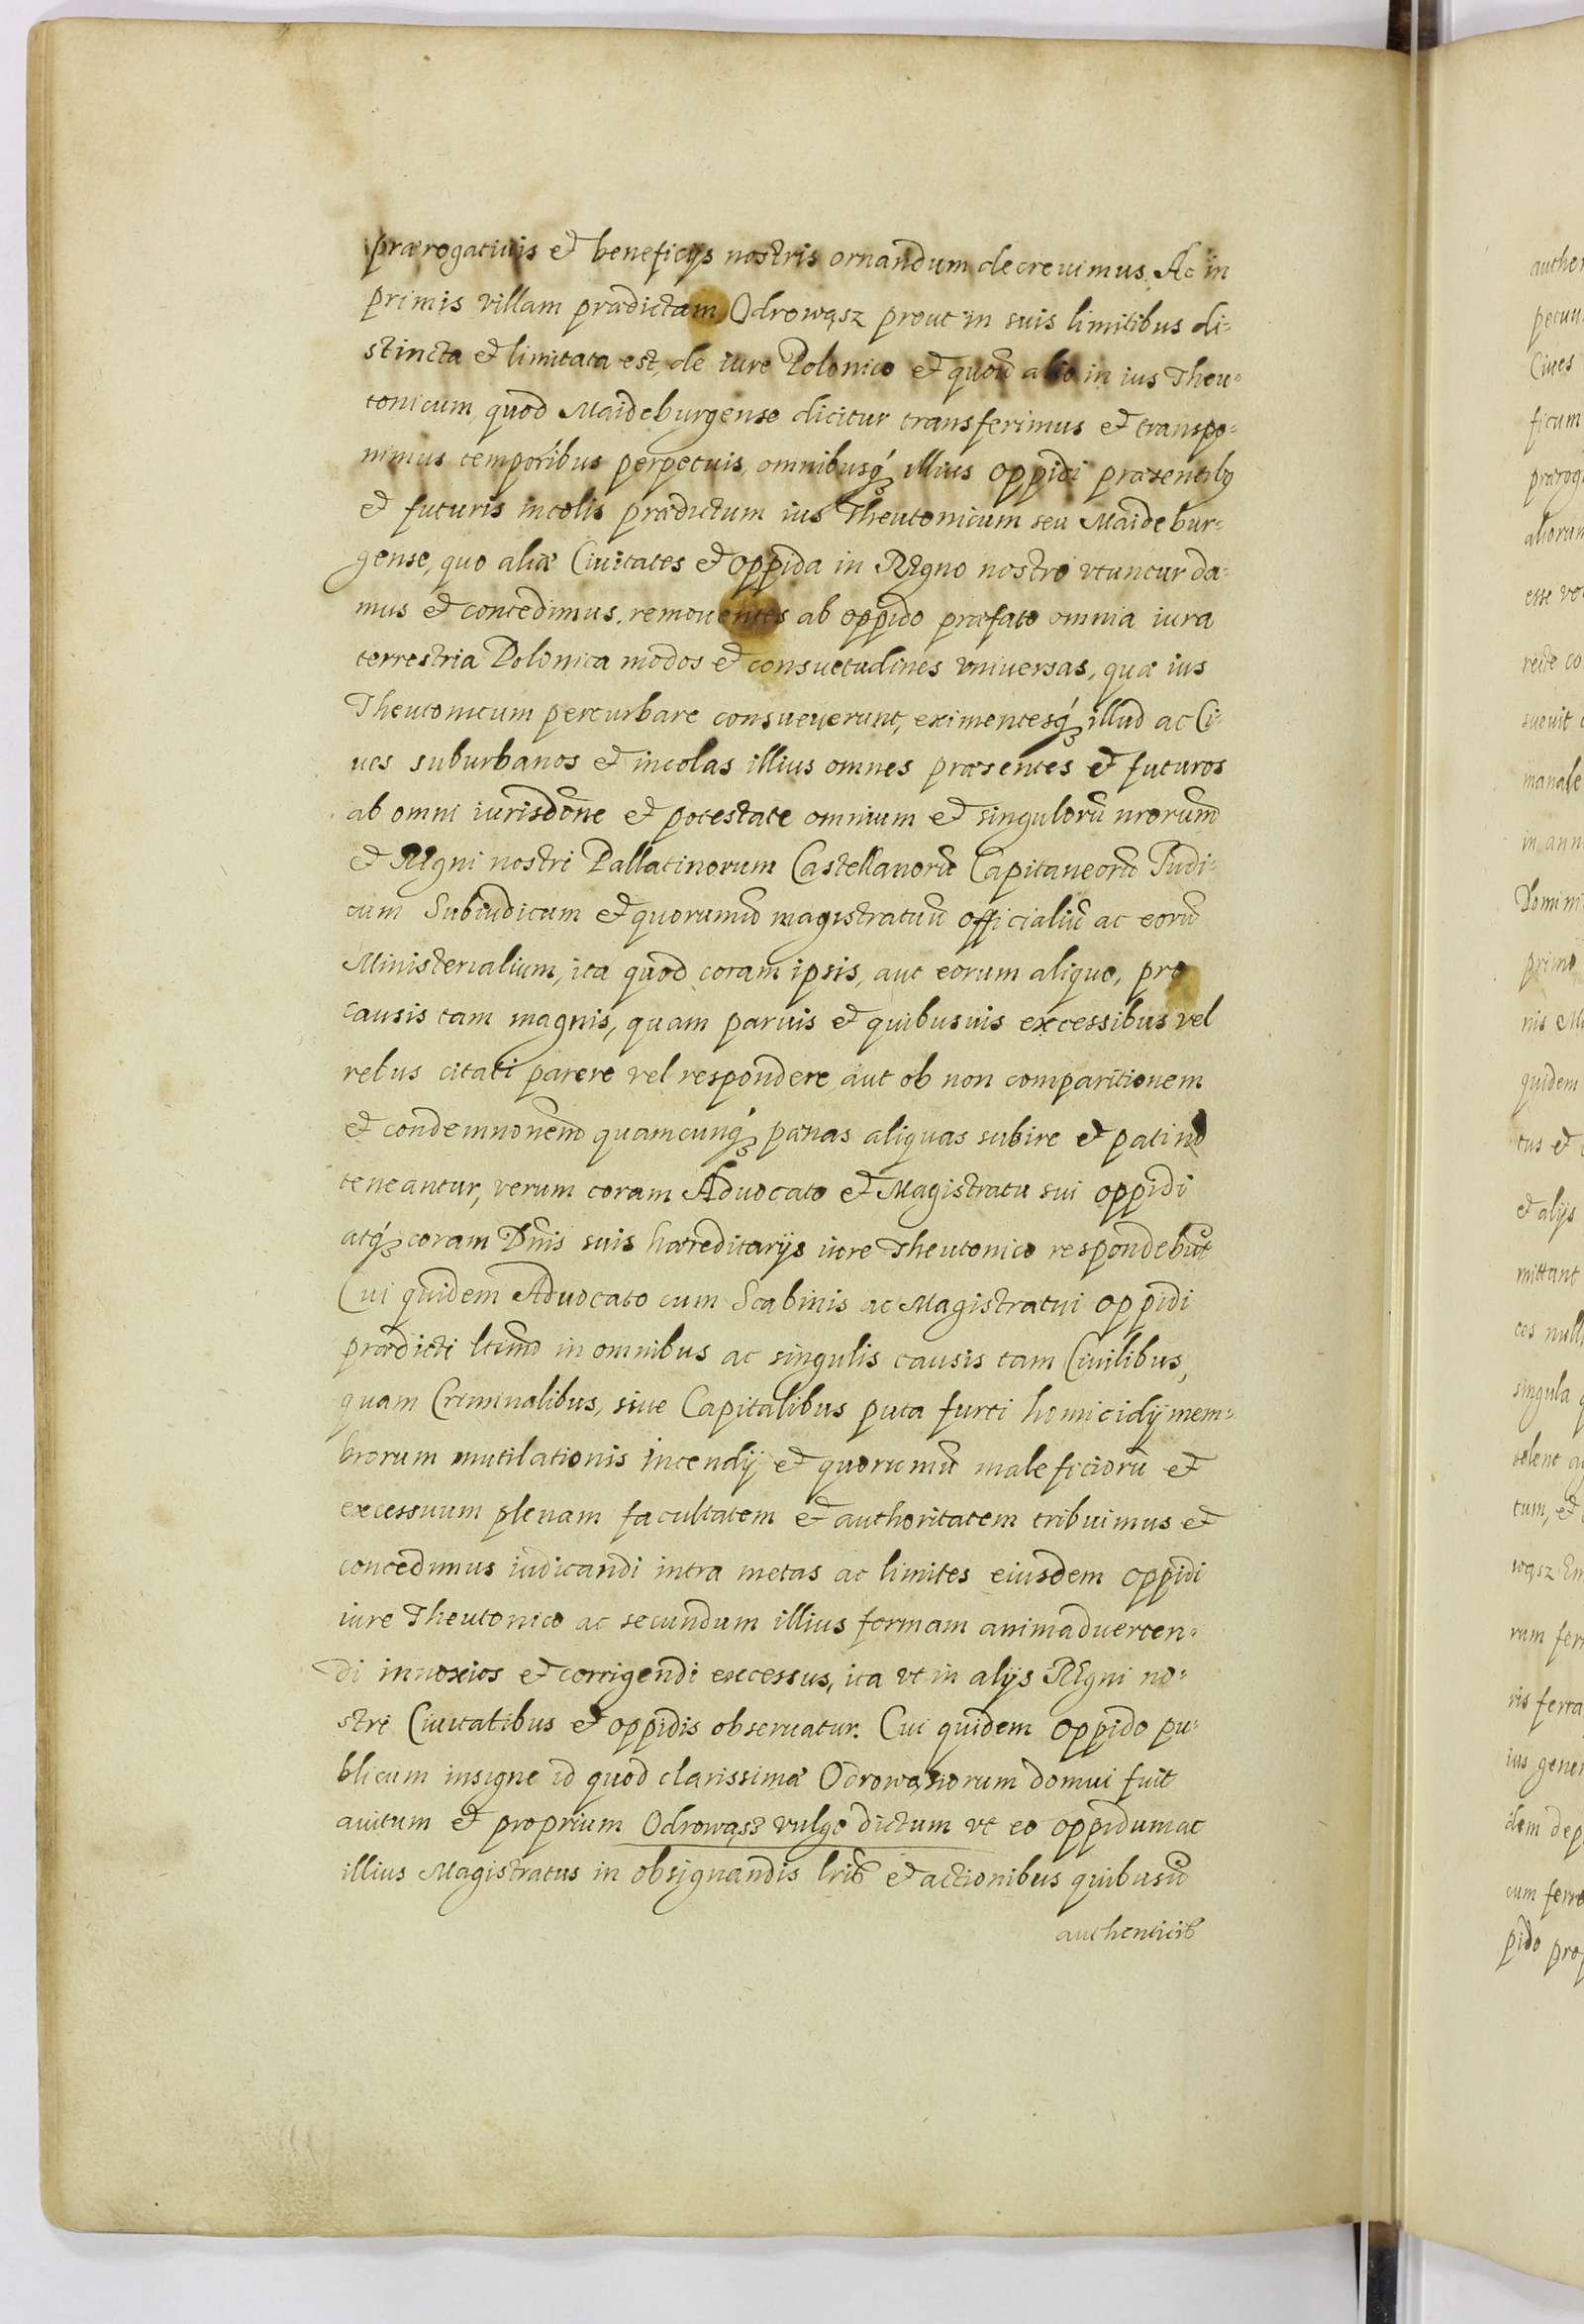 prærogatiuis et beneficijs nostris ornandum decreuimus. Ac in
primis villam prædictam Odrowąsz prout in suis limitibus di=
stincta et limitata est, de iure Polonico et quouis alio in ius Theu=
tonicum quod Maideburgense dicitur transferimus et transpo=
nimus temporibus perpetuis, omnibusq́ꝫ illius oppidi præsentibꝫ
et futuris incolis prædictum ius Theutonicum seu Maidebur=
gense, quo aliæ Ciuitates et oppida in Regno nostro vtuntur da=
mus et concedimus. remouentes ab oppido præfato omnia iura
terrestria Polonica modos et consuetudines vniuersas, quæ ius
Theutonicum perturbare consueuerunt, eximentesq́ꝫ illud ac Ci=
ues suburbanos et incolas illius omnes præsentes et futuros
ab omni iurisdōne et potestate omnium et singulorū nrorum
et Regni nostri Pallatinorum Castellanorū Capitaneorū Iudi=
cum Subiudicum et quorumuis magistratuū officialiū ac eorū
Ministerialium, ita quod coram ipsis, aut eorum aliquo, pro
causis tam magnis, quam paruis et quibusuis excessibus vel
rebus citati parere vel respondere aut ob non comparitionem
et condemnōnem quamcunq́ꝫ pænas aliquas subire et pati nō
teneantur, verum coram Aduocato et Magistratu sui oppidi
atq́ꝫ coram Dnis suis hæreditarijs iure Theutonico respondebūt
Cui quidem Aduocato cum Scabinis ac Magistratui oppidi
prædicti ltimo in omnibus ac singulis causis tam Ciuilibus,
quam Criminalibus, siue Capitalibus puta furti homicidij mem=
brorum mutilationis incendij et quorumuis maleficiorū et
excessuum plenam facultatem et authoritatem tribuimus et
concedimus iudicandi intra metas ac limites eiusdem oppidi
iure Theutonico ac secundum illius formam animaduerten=
di in noxios et corrigendi excessus, ita vt in alijs Regni no=
stri Ciuitatibus et oppidis obseruatur. Cui quidem oppido pu=
blicum insigne id quod clarissimæ Odrowąsiorum domui fuit
auitum et proprium Odrowąsz vulgo dictum vt eo oppidum ac
illius Magistratus in obsignandis lrib et actionibus quibusuis
authenticib